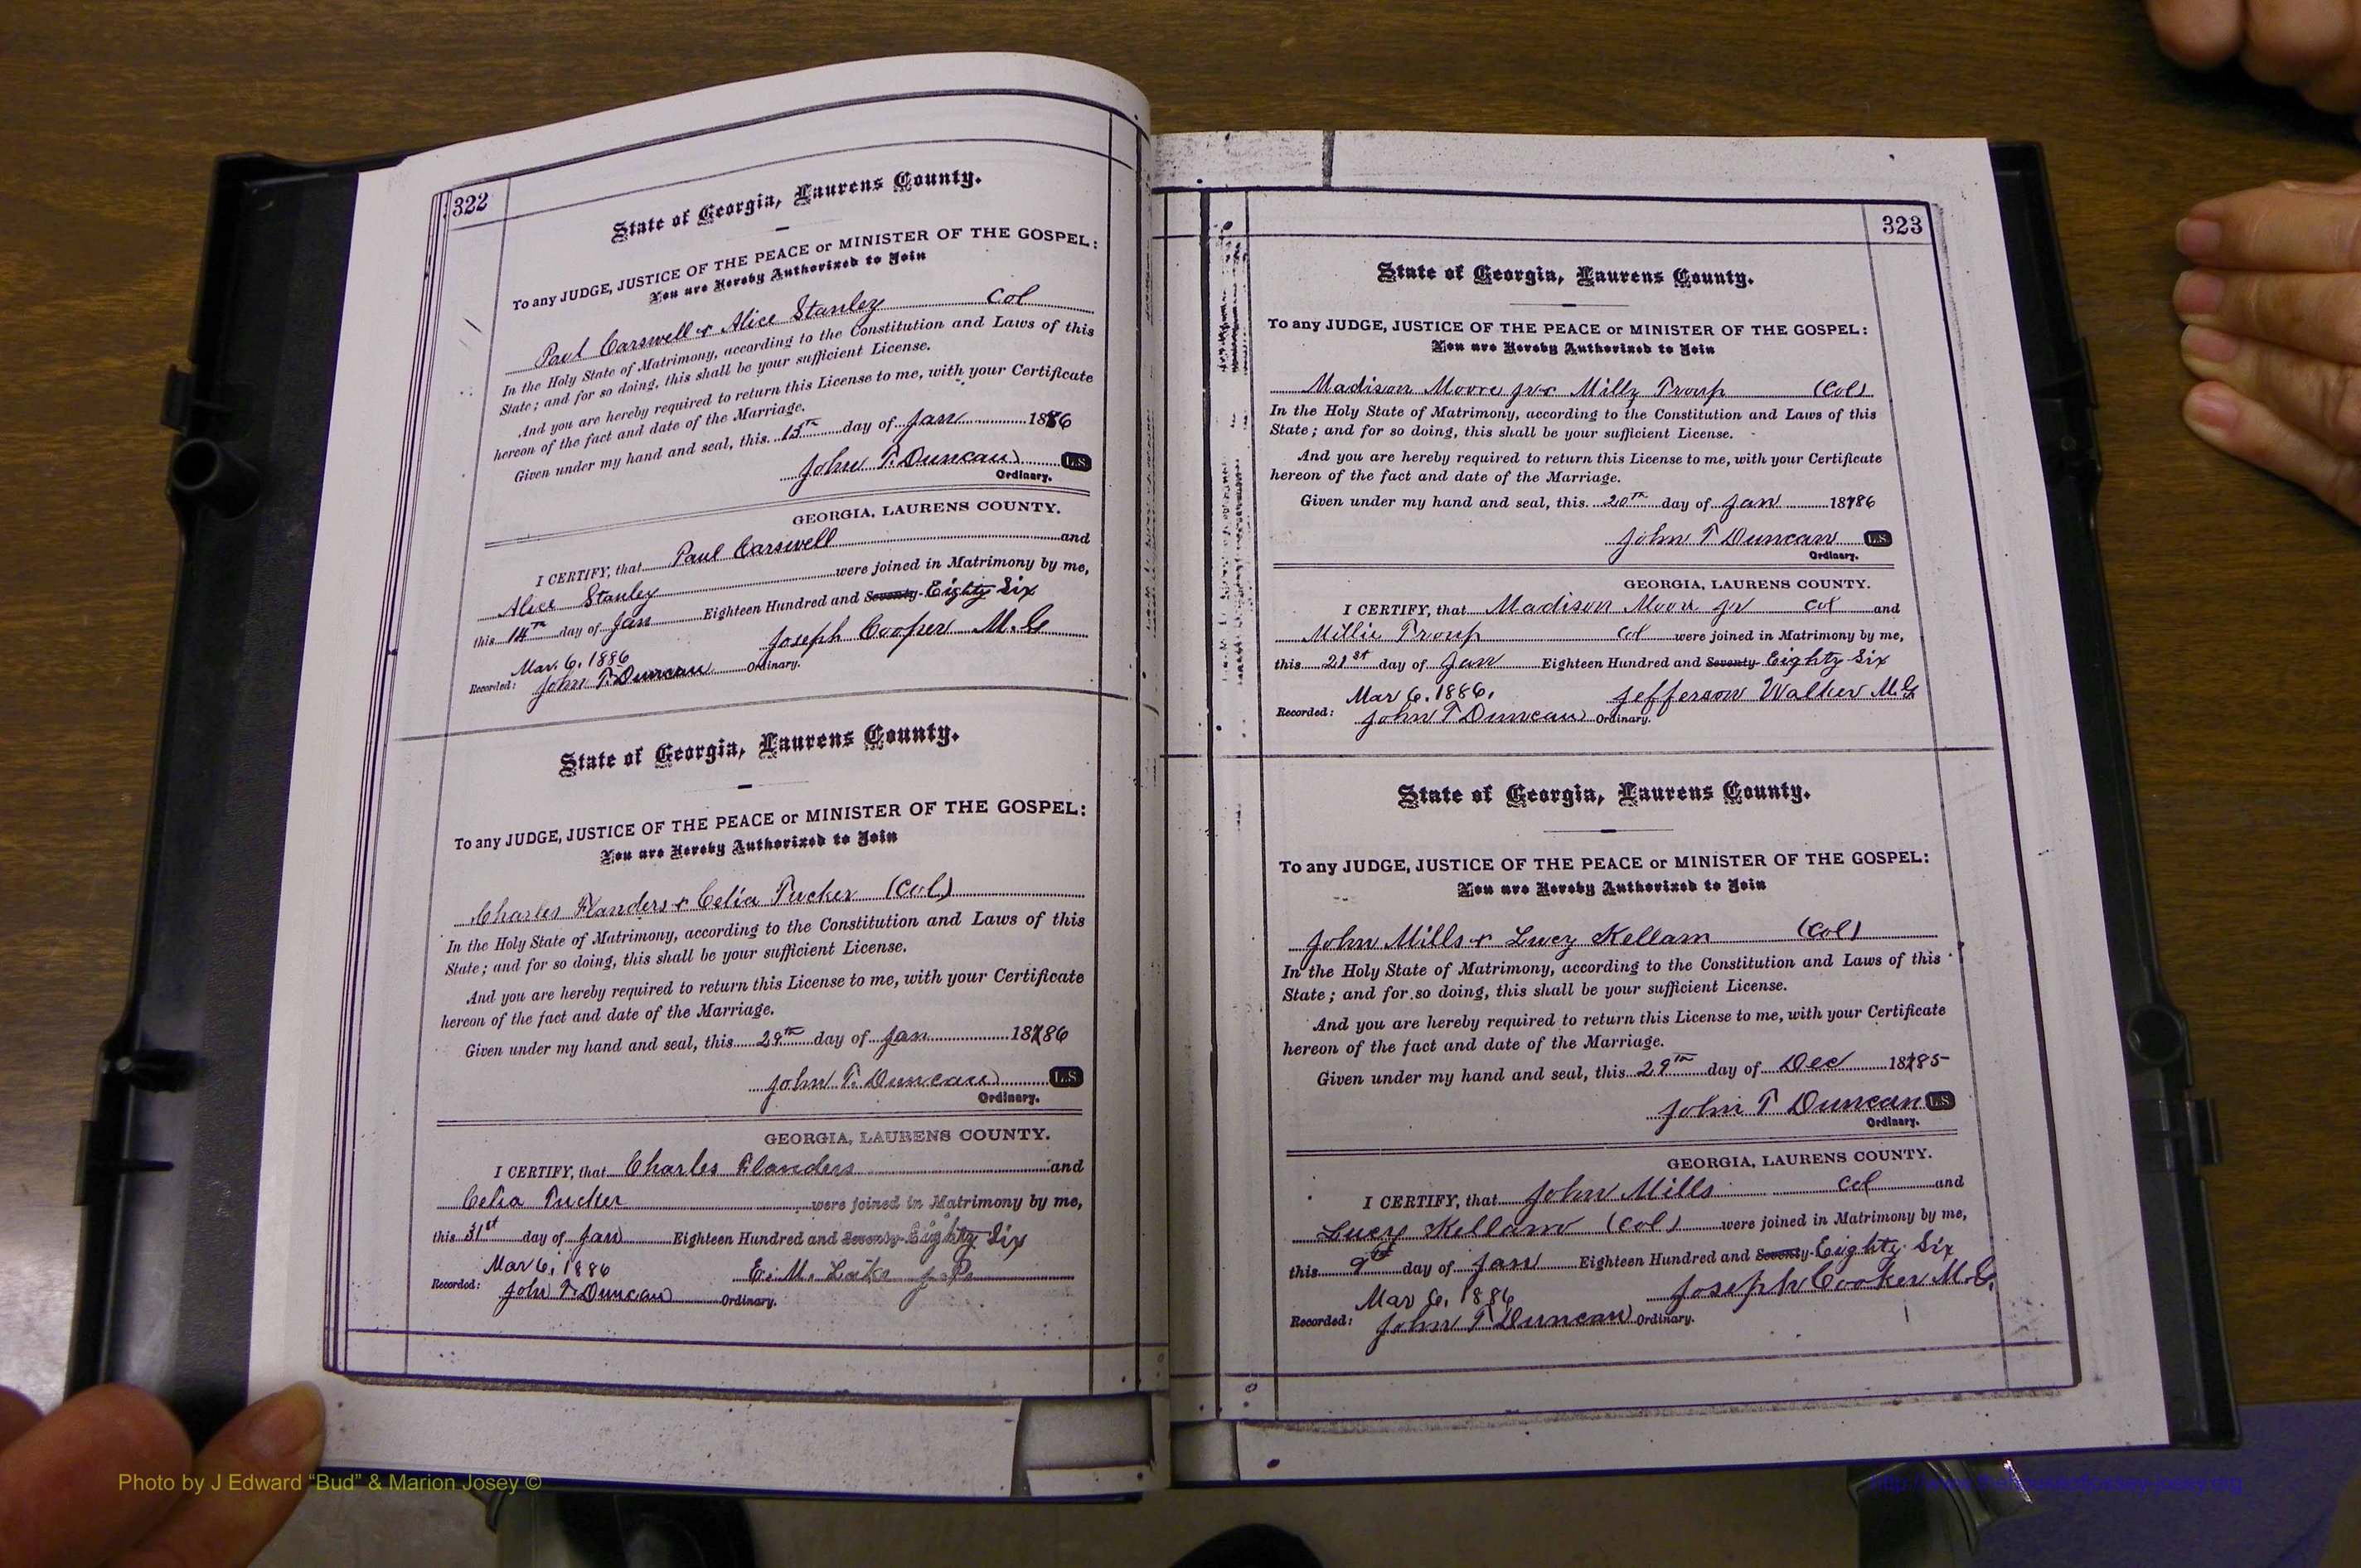 322
State of Georgia, Laurens County.
To any JUDGE, JUSTICE OF THE PEACE or MINISTER OF THE GOSPEL:
You are Hereby Authorized to Join
Paul Carswell & Alice Stanley Col
In the Holy State of Matrimony, according to the Constitution and Laws of this
State; and for so doing, this shall be your sufficient License.
And you are hereby required to return this License to me, with your Certificate
hereon of the fact and date of the Marriage.
Given under my hand and seal, this 13th day of Jan 1886
John T. Duncan L.S.
Ordinary.
GEORGIA, LAURENS COUNTY.
I CERTIFY, that Paul Carswell and
Alice Stanley were joined in Matrimony by me,
this 14th day of Jan Eighteen Hundred and Seventy- Eighty Six
Joseph Cooper M.G
Mar. 6, 1886
Recorded: John T. Duncan Ordinary.
State of Georgia, Laurens County.
To any JUDGE, JUSTICE OF THE PEACE or MINISTER OF THE GOSPEL:
You are Hereby Authorized to Join
Charles Flanders & Celia Tucker (Col)
In the Holy State of Matrimony, according to the Constitution and Laws of this
State; and for so doing, this shall be your sufficient License.
And you are hereby required to return this License to me, with your Certificate
hereon of the fact and date of the Marriage.
Given under my hand and seal, this 29th day of Jan 18786
John T. Duncan L.S
Ordinary.
GEORGIA, LAURENS COUNTY.
I CERTIFY, that Charles Flanders and
Celia Tucker were joined in Matrimony by me,
this 31st day of Jan Eighteen Hundred and Seventy- Eighty Six
Mar 6, 1886 E. M. Lake J.P.
Recorded: John T. Duncan Ordinary.
323
State of Georgia, Laurens County.
To any JUDGE, JUSTICE OF THE PEACE or MINISTER OF THE GOSPEL:
You are Hereby Authorized to Join
Madison Moore Jr & Milly Troup (Col)
In the Holy State of Matrimony, according to the Constitution and Laws of this
State; and for so doing, this shall be your sufficient License.
And you are hereby required to return this License to me, with your Certificate
hereon of the fact and date of the Marriage.
Given under my hand and seal, this 20th day of Jan 18786
John T Duncan L.S.
Ordinary.
GEORGIA, LAURENS COUNTY.
I CERTIFY, that Madison Moore Jr Col and
Millie Troup Col were joined in Matrimony by me,
this 21st day of Jan Eighteen Hundred and Seventy- Eighty Six
Mar 6, 1886. Jefferson Walker M.G
Recorded: John T Duncan Ordinary.
State of Georgia, Laurens County.
To any JUDGE, JUSTICE OF THE PEACE or MINISTER OF THE GOSPEL:
You are Hereby Authorized to Join
John Mills & Lucy Kellam (Col)
In the Holy State of Matrimony, according to the Constitution and Laws of this
State; and for so doing, this shall be your sufficient License.
And you are hereby required to return this License to me, with your Certificate
hereon of the fact and date of the Marriage.
Given under my hand and seal, this 29th day of Dec 18785
John T Duncan L.S.
Ordinary.
GEORGIA, LAURENS COUNTY.
I CERTIFY, that John Mills Col and
Lucy Kellam (Col) were joined in Matrimony by me,
this 9th day of Jan Eighteen Hundred and Seventy- Eighty Six
Joseph Cooker M.G.
Mar 6, 1886
Recorded: John T Duncan Ordinary.
Photo by J Edward “Bud” & Marion Josey ©
http://www.thehouseofjossey-josey.org